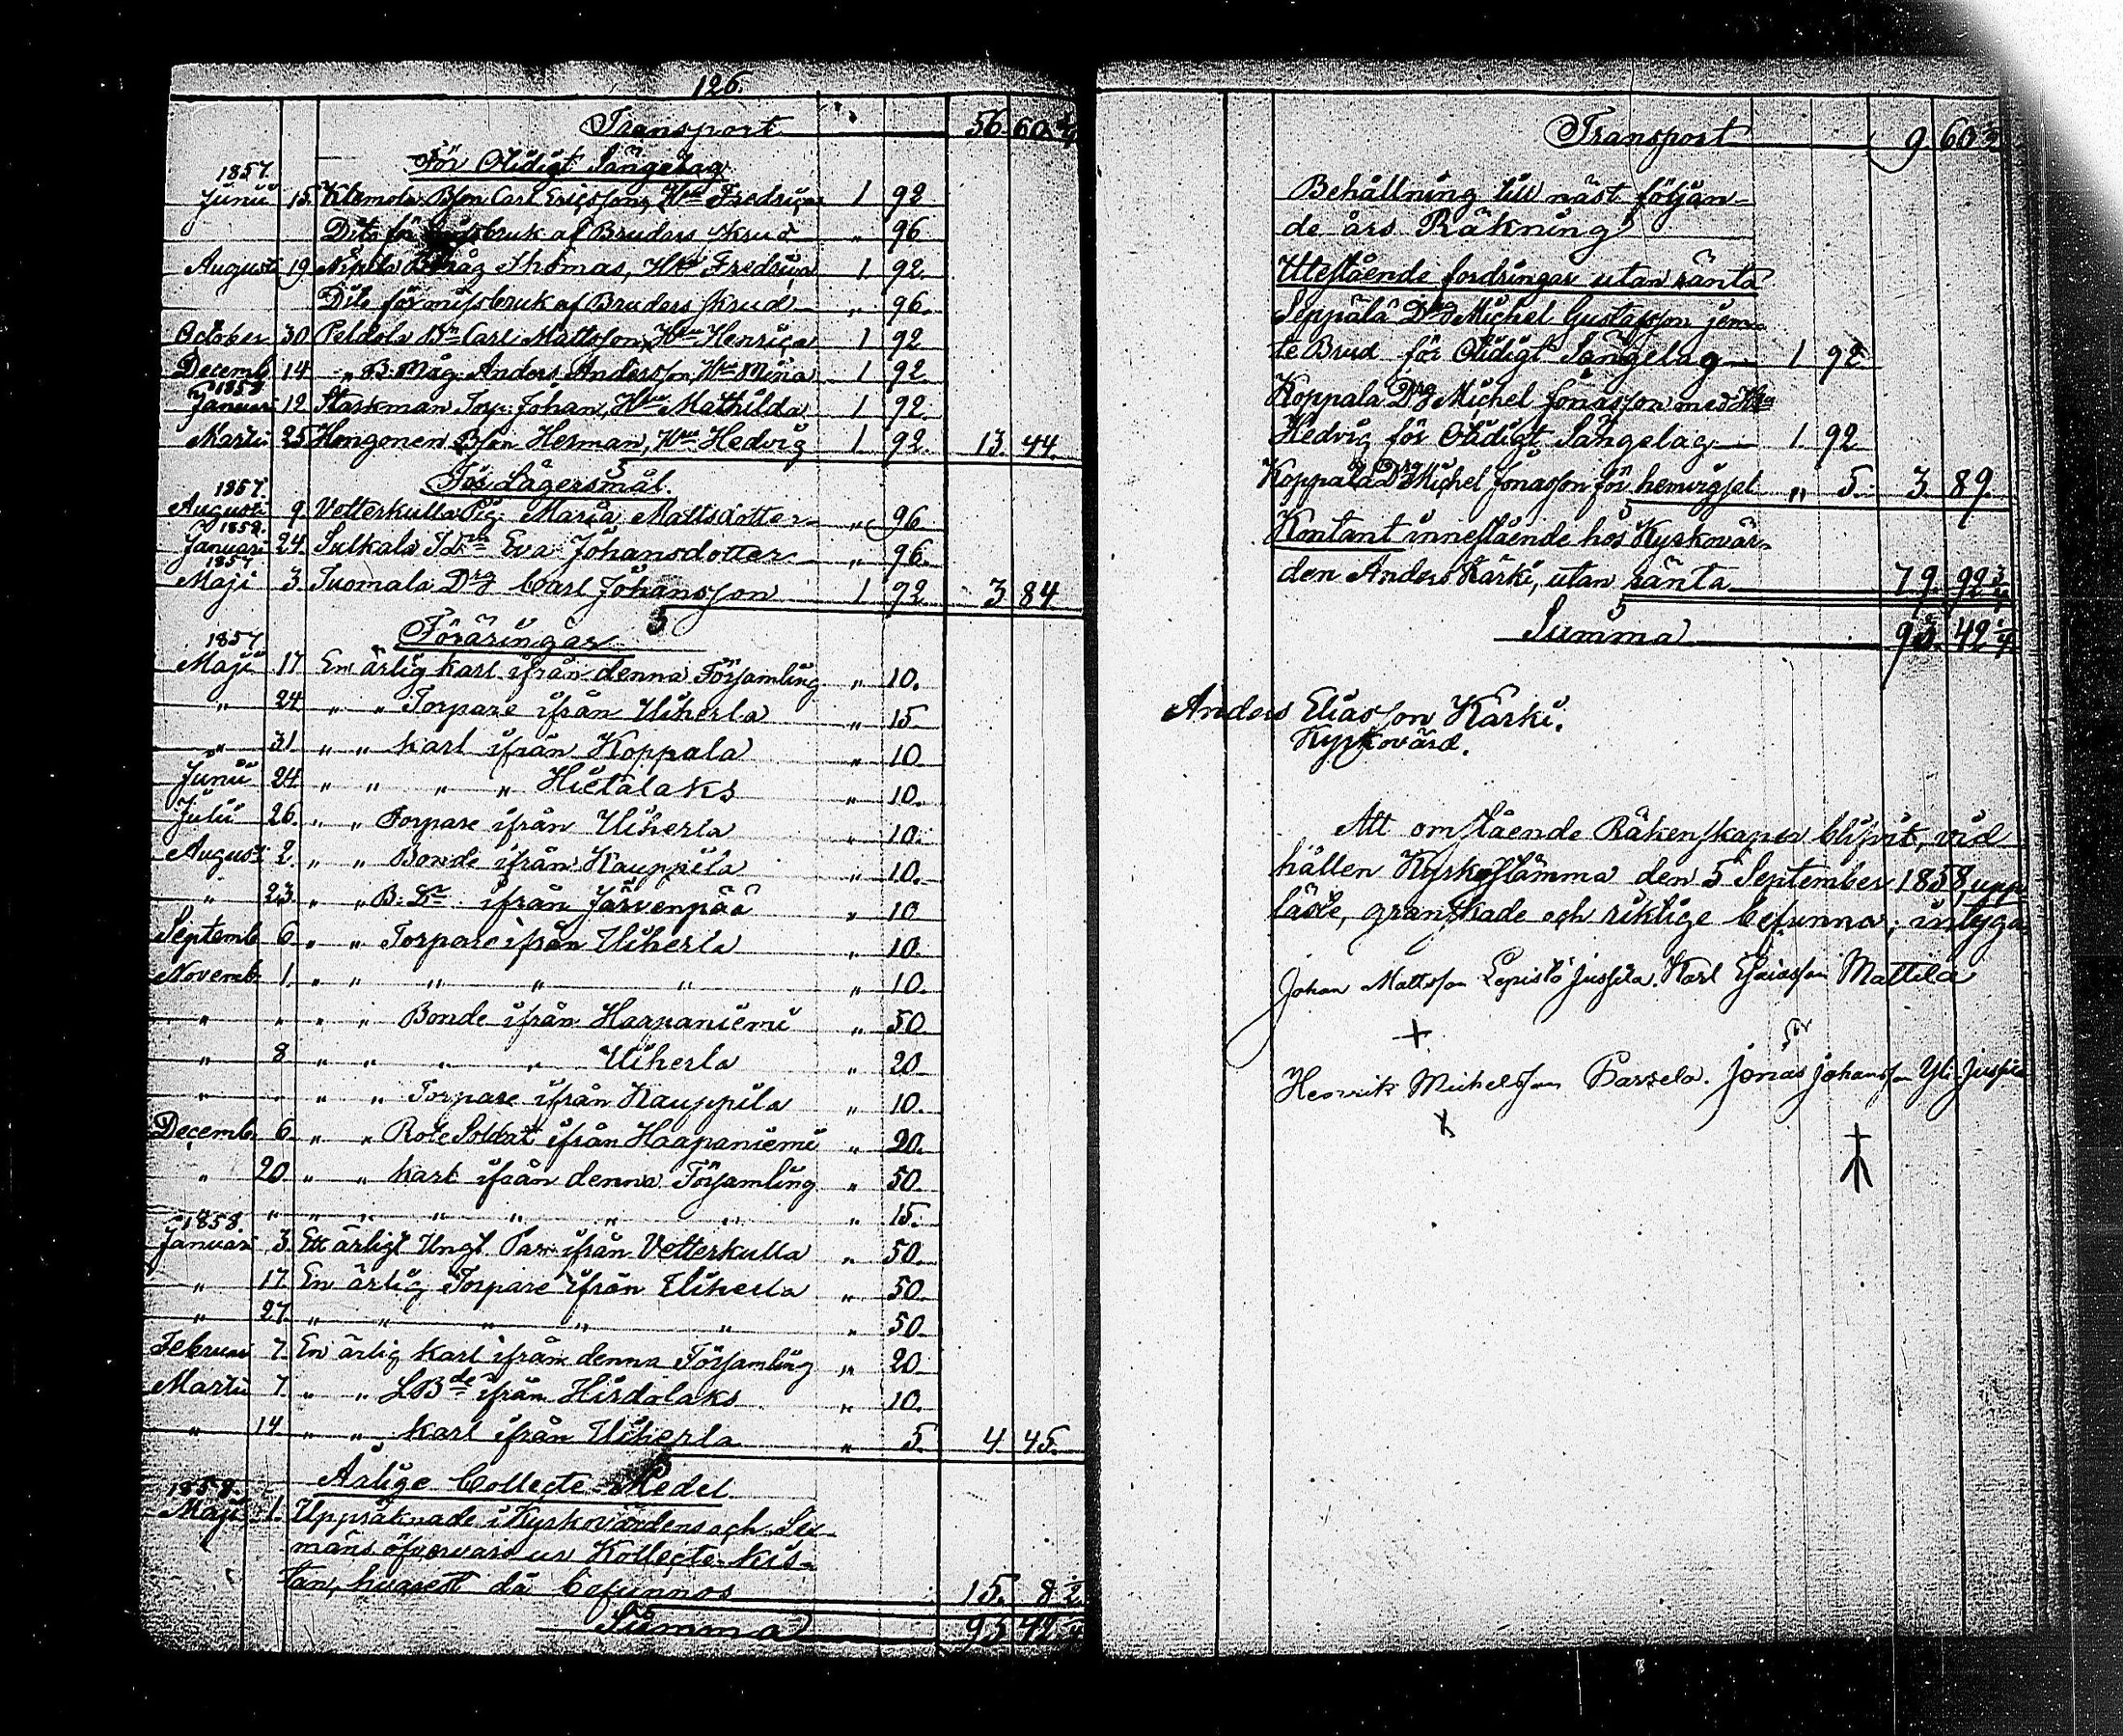 126.
Transport 56. 60 1/4
För Otidigt Sängelag
1857.
Junii 15. Klemola Bson Carl Ericsson, Hu Fredrica 1 92
Dito för bruk af Bruders skrud " 96
Augusti 19 Måg Thomas, Hu Fredrica 1 92.
Dito för missbruk af Bruders skrud " 96.
October 30 Peldola Bn Carl Mattsson, Hu Henrica 1 92
Decemb. 14 " B. Måg Anders Andersson Hu Mina 1 92
1858
Januari 12 Starkman Torp. Johan, Hu Mathilda 1 92.
Martii 25 Hongonen Bson Herman, Hu Hedvig 1. 92. 13. 44.
För Lägersmål.
1857.
Augusti 9. Vetterkulla Pig. Maria Mattsdotter " 96
1858.
Januari 24. Sulkala Eva Johansdotter " 96.
1857
Maji 3. Tuomala Drg Carl Johansson 1 92 3 84
Föräringar
1857
Maji 17 En ärlig karl ifrån denna Församling " 10.
" 24 " " Torpare ifrån Uiherla " 15
" 31 " " karl ifrån Koppala " 10
Junii 24. " " " " Hietalaks " 10.
Julii 26. " " Torpare ifrån Uiherla " 10.
August. 2. " " Bonde ifrån Kauppila " 10.
" 23. " " B. Sn ifrån Järvenpää " 10
Septemb. 6. " " Torpare ifrån Uiherla " 10.
Novemb. 1. " " " " " " 10.
" " " " Bonde ifrån Haapaniemi " 50
" 8 " " " " Uiherla " 20
" " " " Torpare ifrån Kauppila " 10.
Decemb. 6. " " Rote Soldat ifrån Haapaniemi " 20.
" 20 " " karl ifrån denna Församling " 50.
" " " " " " " " " 15.
1858.
Januari 3. Ett ärligt Ungt Par ifrån Vetterkulla " 50.
" 17. En ärlig Torpare ifrån Uiherla " 50
" 27. " " " " " " 50.
Februari 7. En ärlig karl ifrån denna Församling " 20
Martii 7. " " LBde ifrån Hirdolaks " 10.
" 14. " " karl ifrån Uiherla " 5. 4 45.
Årlige Collecte-Medel
1858.
Maji 1. Uppräknade i Kyrkovärdens och Sex-
mäns öfvervaro ur Kollecte-kis-
tan, hvarest då befunnos 15. 8 1/2
Summa 93 42 1/4
Transport 9 60 1/2
Behållning till näst följan-
de års Räkning
Utestående fordringar utan ränta
Seppälä Drg Michel Gustafsson jem-
te Brud för Otidigt Sängelag 1. 92
Koppala Drg Michel Jonasson med Hu
Hedvig för Otidigt Sängelag 1. 92
Koppala Drg Michel Jonasson för hemvigsel " 5. 3 89.
Kontant innestående hos Kyrkovär-
den Anders Kärki, utan ränta 79. 92 3/4
Summa 93. 42 1/4
Anders Eliasson Kärki.
Kyrkovärd.
Att omstående Räkenskaper blifvit, vid
hållen Kyrkostämma den 5 September 1858, upp-
läste, granskade och riktige befunna; intyga
Johan Mattsson Lepistö Jussila. Karl Esaiasson Mattila
Henrik Michelsson Parzela. Jonas Johansson Yli Jussila